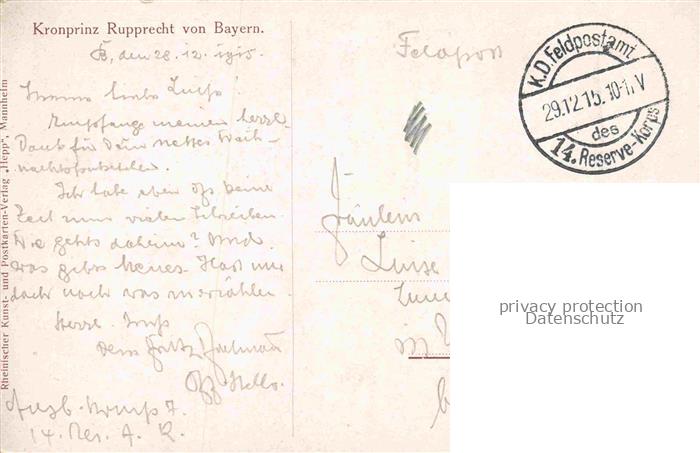 Kronprinz Rupprecht von Bayern.
den 28. 12. 1915.
Feldpost
K.D. Feldpostamt
29.12.15. 10-11. V
des
14. Reserve-Korps
Meine liebe
Empfange meinen herzl.
Dank für Dein nettes Weih-
nachtspäckchen.
Ich habe eben
Zeit zum vielen Schreiben.
Wie gehts daheim? Und
was gibts Neues. Hast mir
doch noch was zu erzählen.
Herzl. Gruß
Dein Fritz
Ausb. Komp 7.
14. Res. A. K.
Fräulein
Luise
in
Rheinischer Kunst- und Postkarten-Verlag „Hepp“, Mannheim
privacy protection
Datenschutz